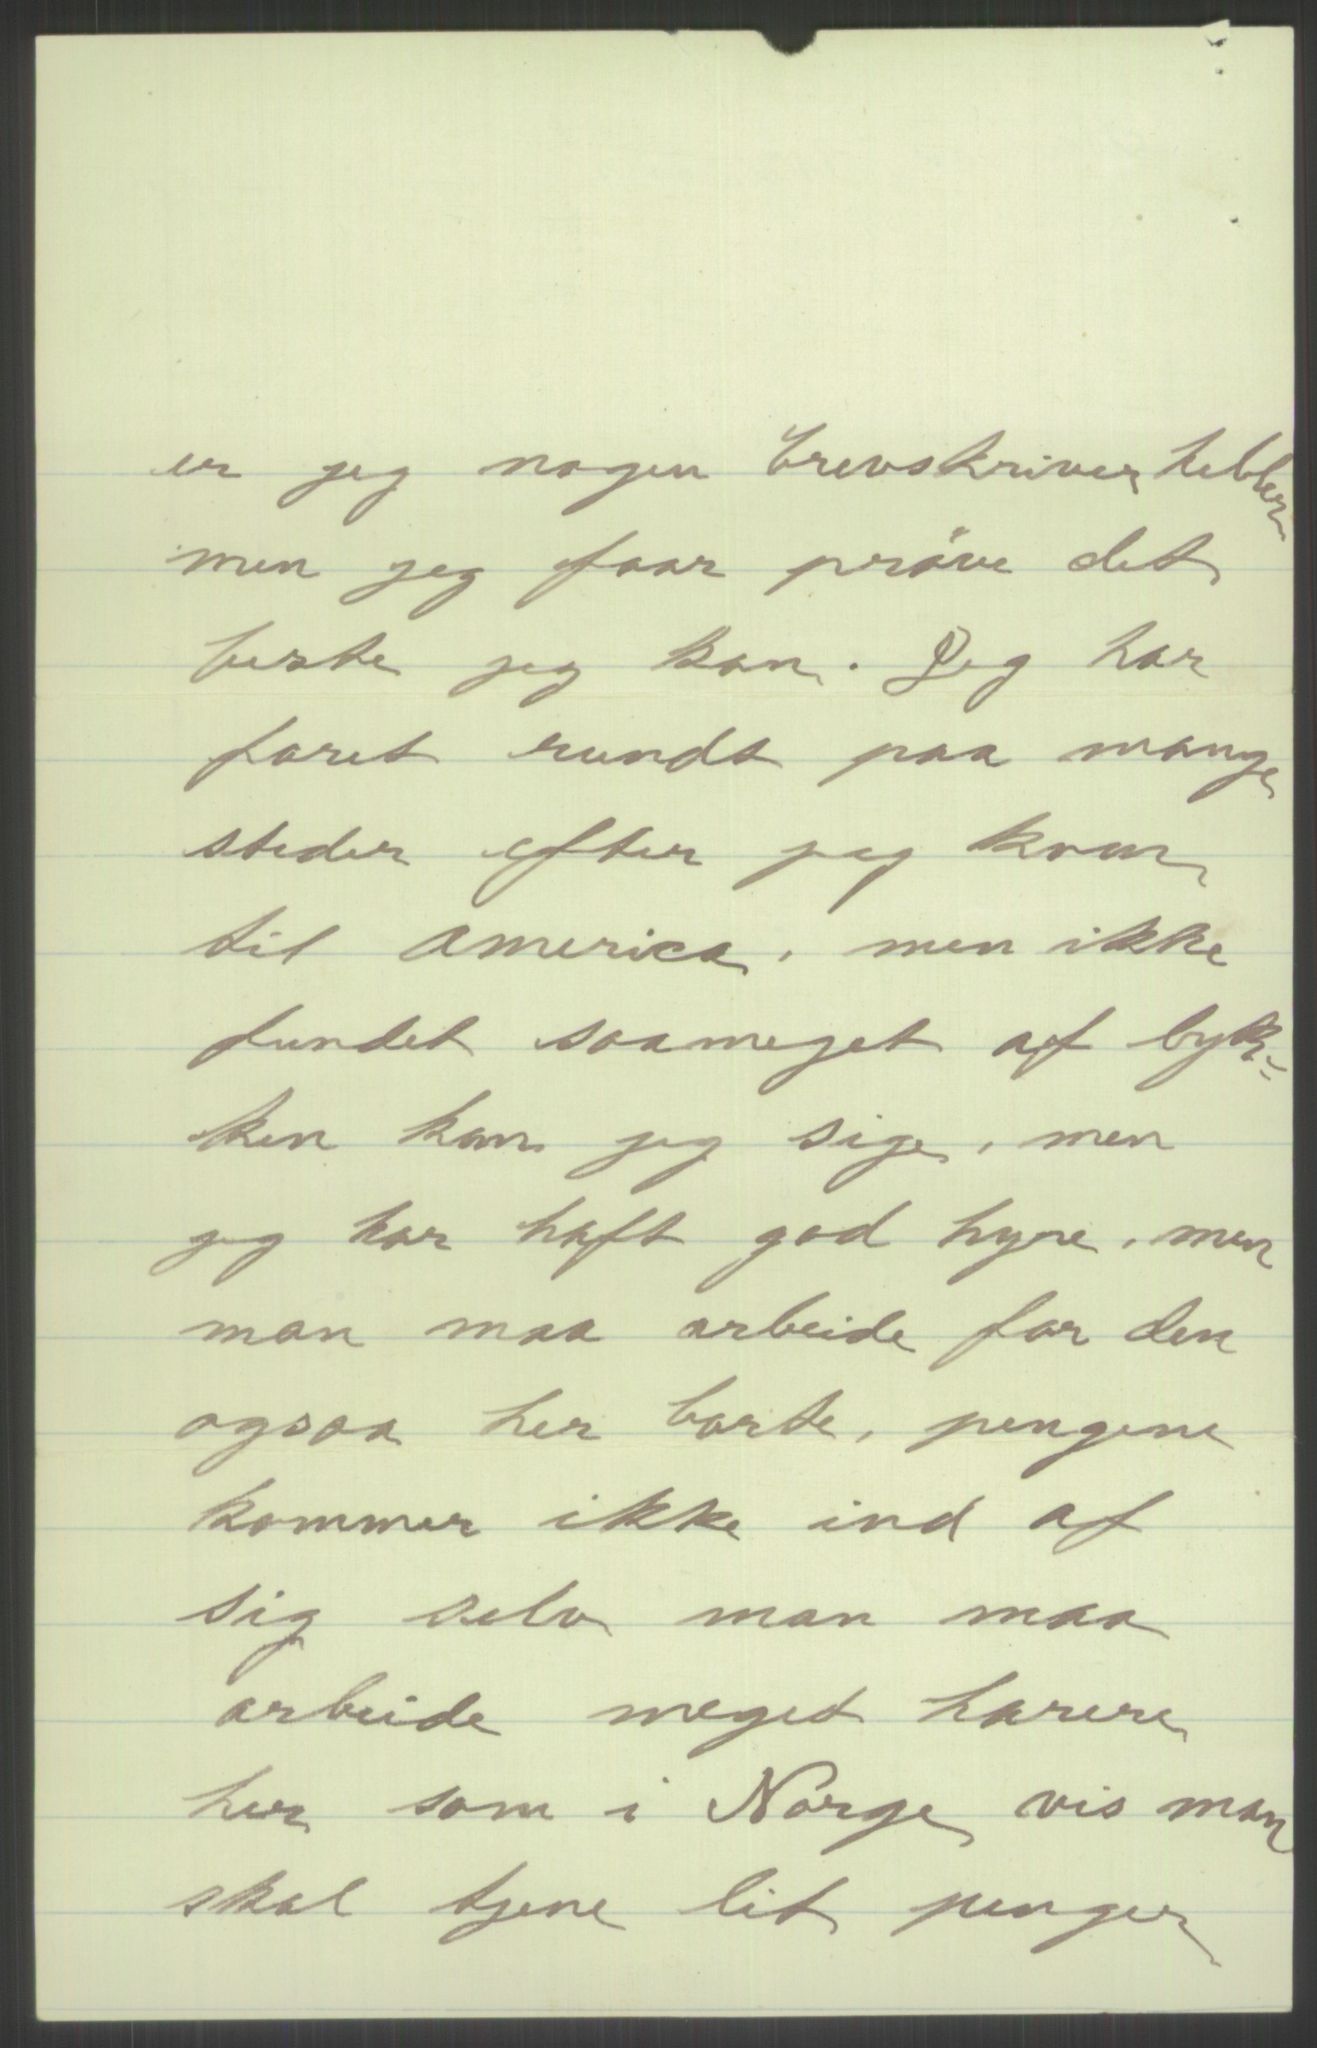 er jeg nogen brevskriver heller
men jeg faar pröve det
beste jeg kan. Jeg har
faret rundt paa mange
steder efter jeg kom
til America, men ikke
fundet saameget af lyk=
ken kan jeg sige, men
jeg har haft god hyre, men
man maa arbeide for den
ogsaa her borte, pengene
kommer ikke ind af
sig selv man maa
arbeide meget harere
her som i Norge vis man
skal tjene lit penger